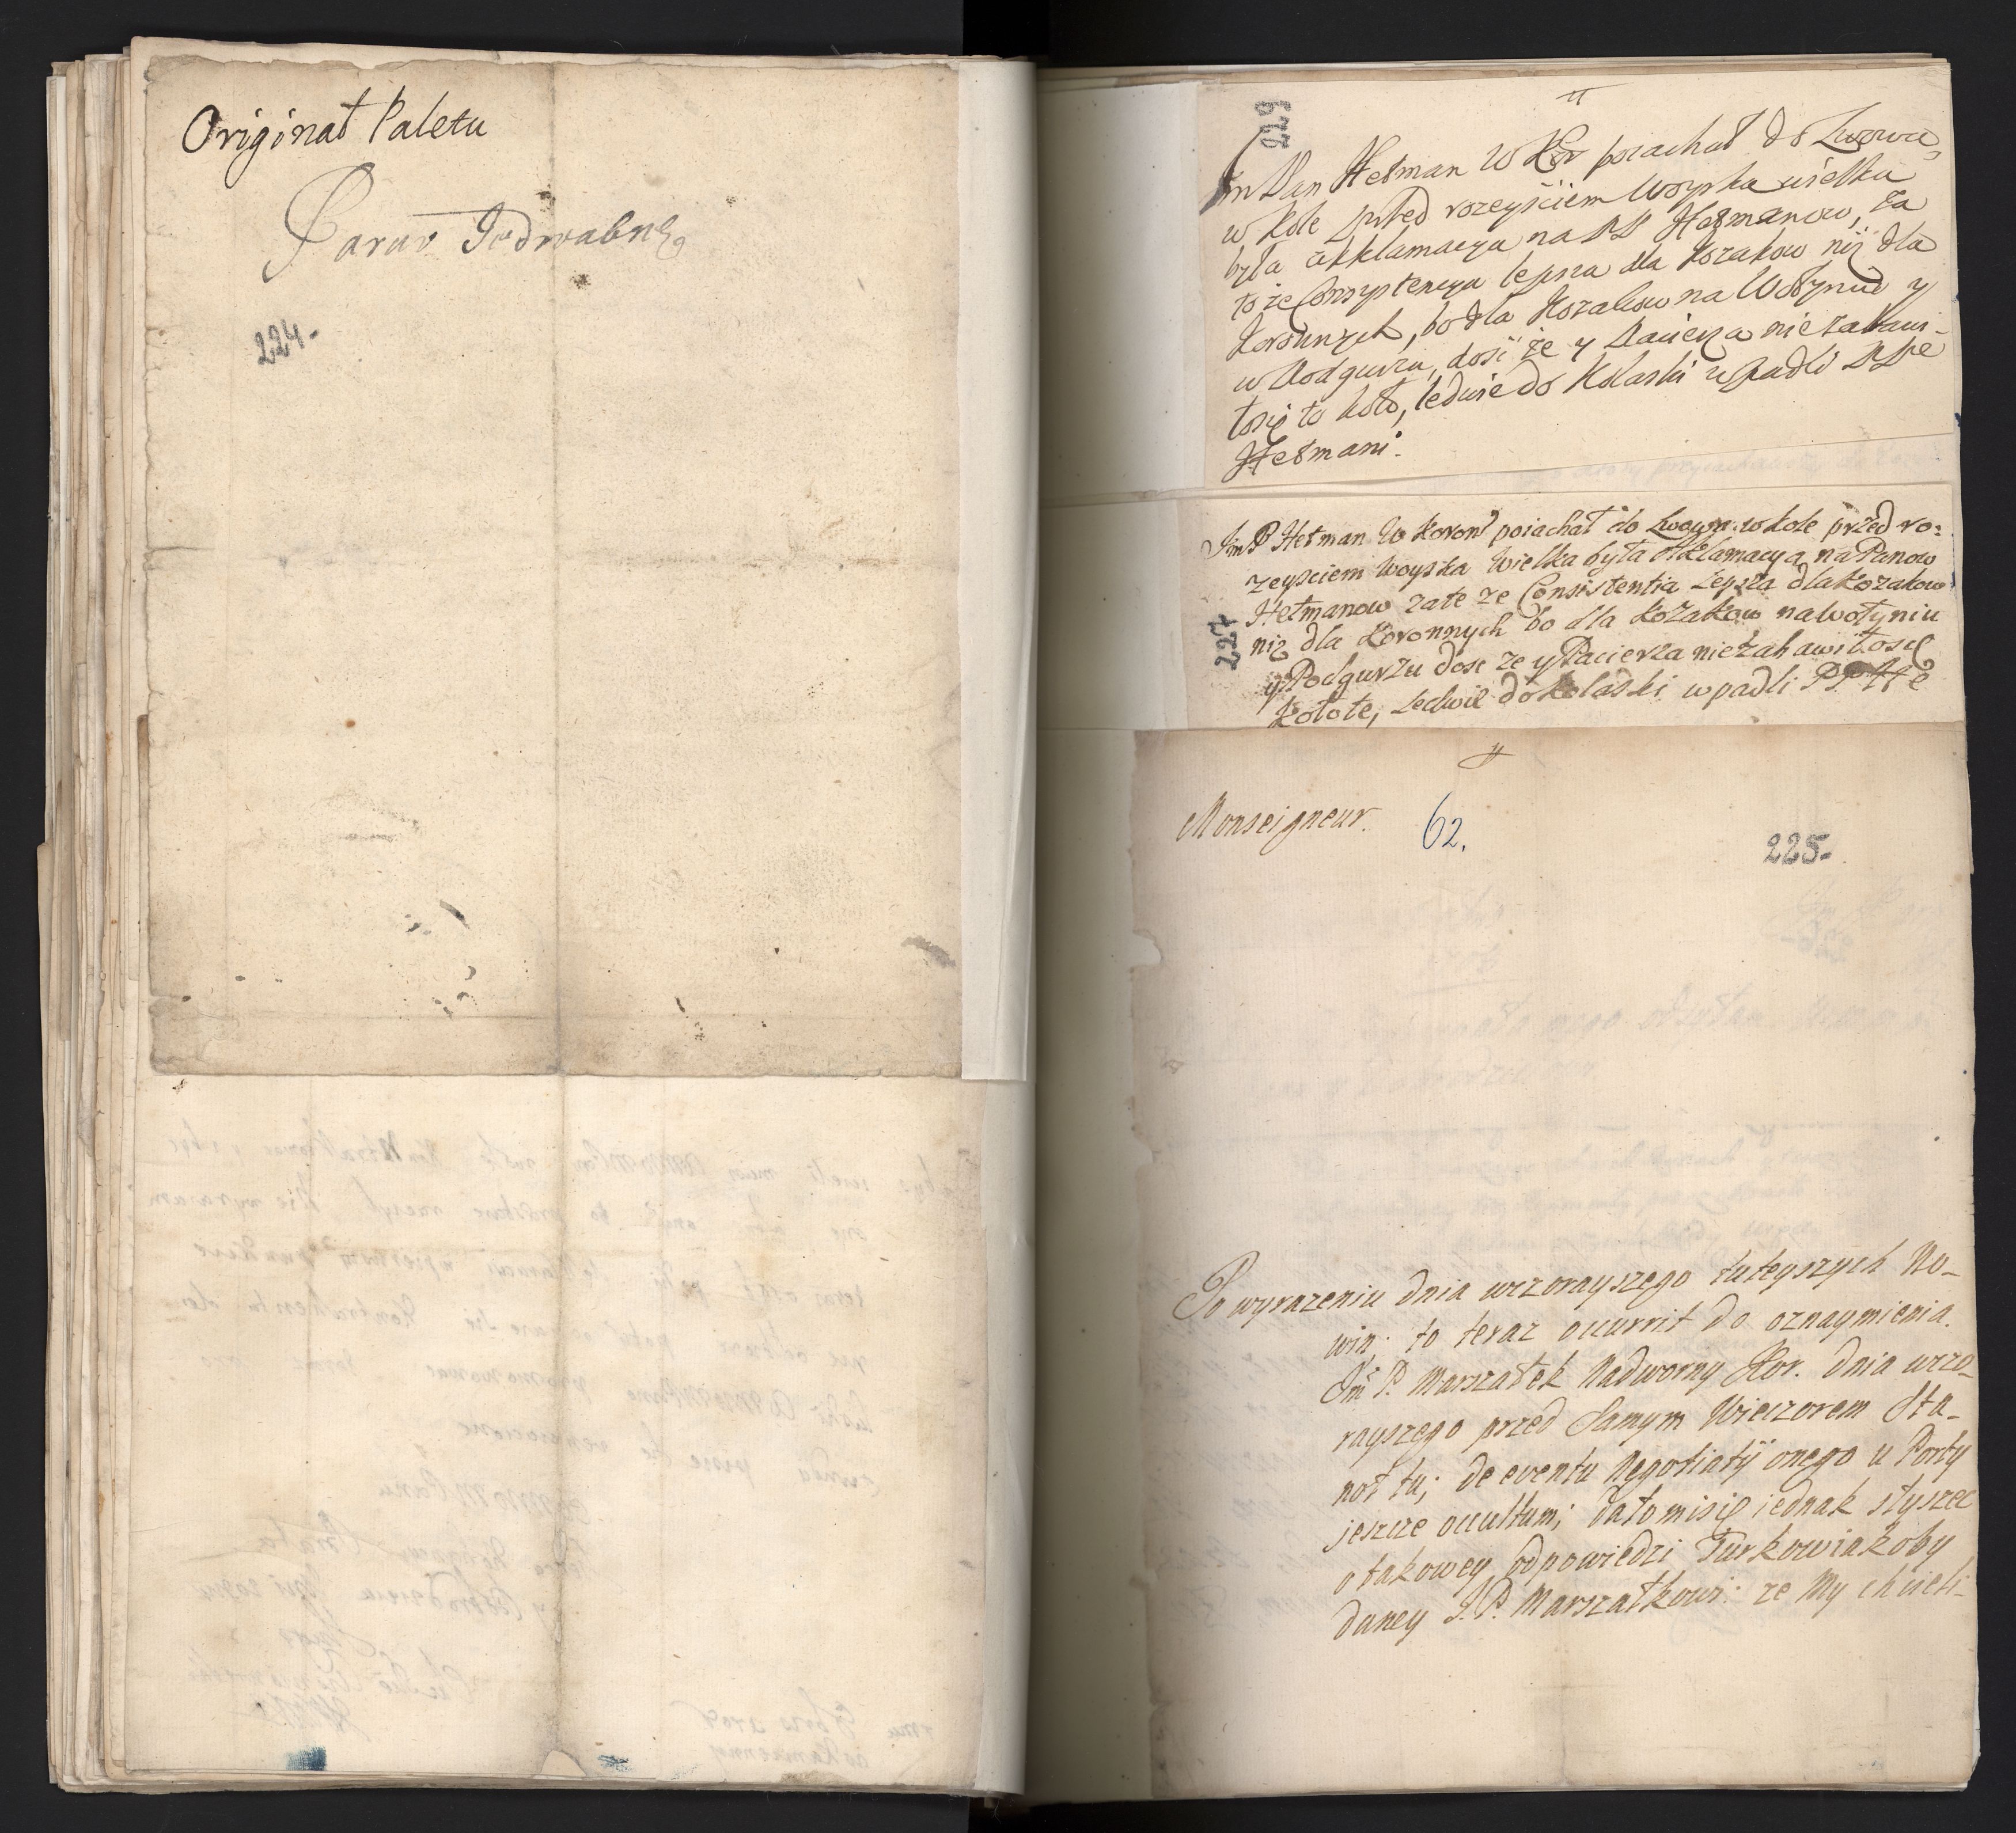 Originał Paletu
Parus Jedwabne
224-
229
Jm Pan Hetman W Kor poiachał do Lwowa
w kole przed rozeyściem Woyska wielka
była akklamacya na PP Hetmanow, za
to że Consystencya lepsza dla Kozakow niż dla
Koronnych, bo dla Kozakow na Wołyniu y
w Podgurzu, dość że y Pacierza nie zabawi-
ło się to koło, ledwie do Kolaski wpadli PPe
Hetmani.
227
Jm P Hetman W Koronł poiachał do Lwowa w kole przed ro:
zeysciem woyska wielka była akklamacya na Panow
Hetmanow zate ze Consistentia Lepsza dla Kozakow
niz dla Koronnych bo dla Kozakow na wołyniu
y Podgurzu dosc ze y Pacierza nie zabawiło sę
Koło te, Ledwie do Kolaski wpadli PP He
Monseigneur. 62.
225-
Po wyrazeniu dnia wczorayszego tuteyszych No-
win; to teraz occurrit do oznaymienia.
Jm P. Marszałek Nadworny Kor. dnia wczo-
rayszego przed Samym Wieczorem Sta-
noł tu; de eventu Negotiatÿ onego u Porty
jeszcze occultum; dało mi się jednak słyszec
o takowey odpowiedzi Turkow iakoby
daney J.P. Marszałkowi: ze My chcieli-